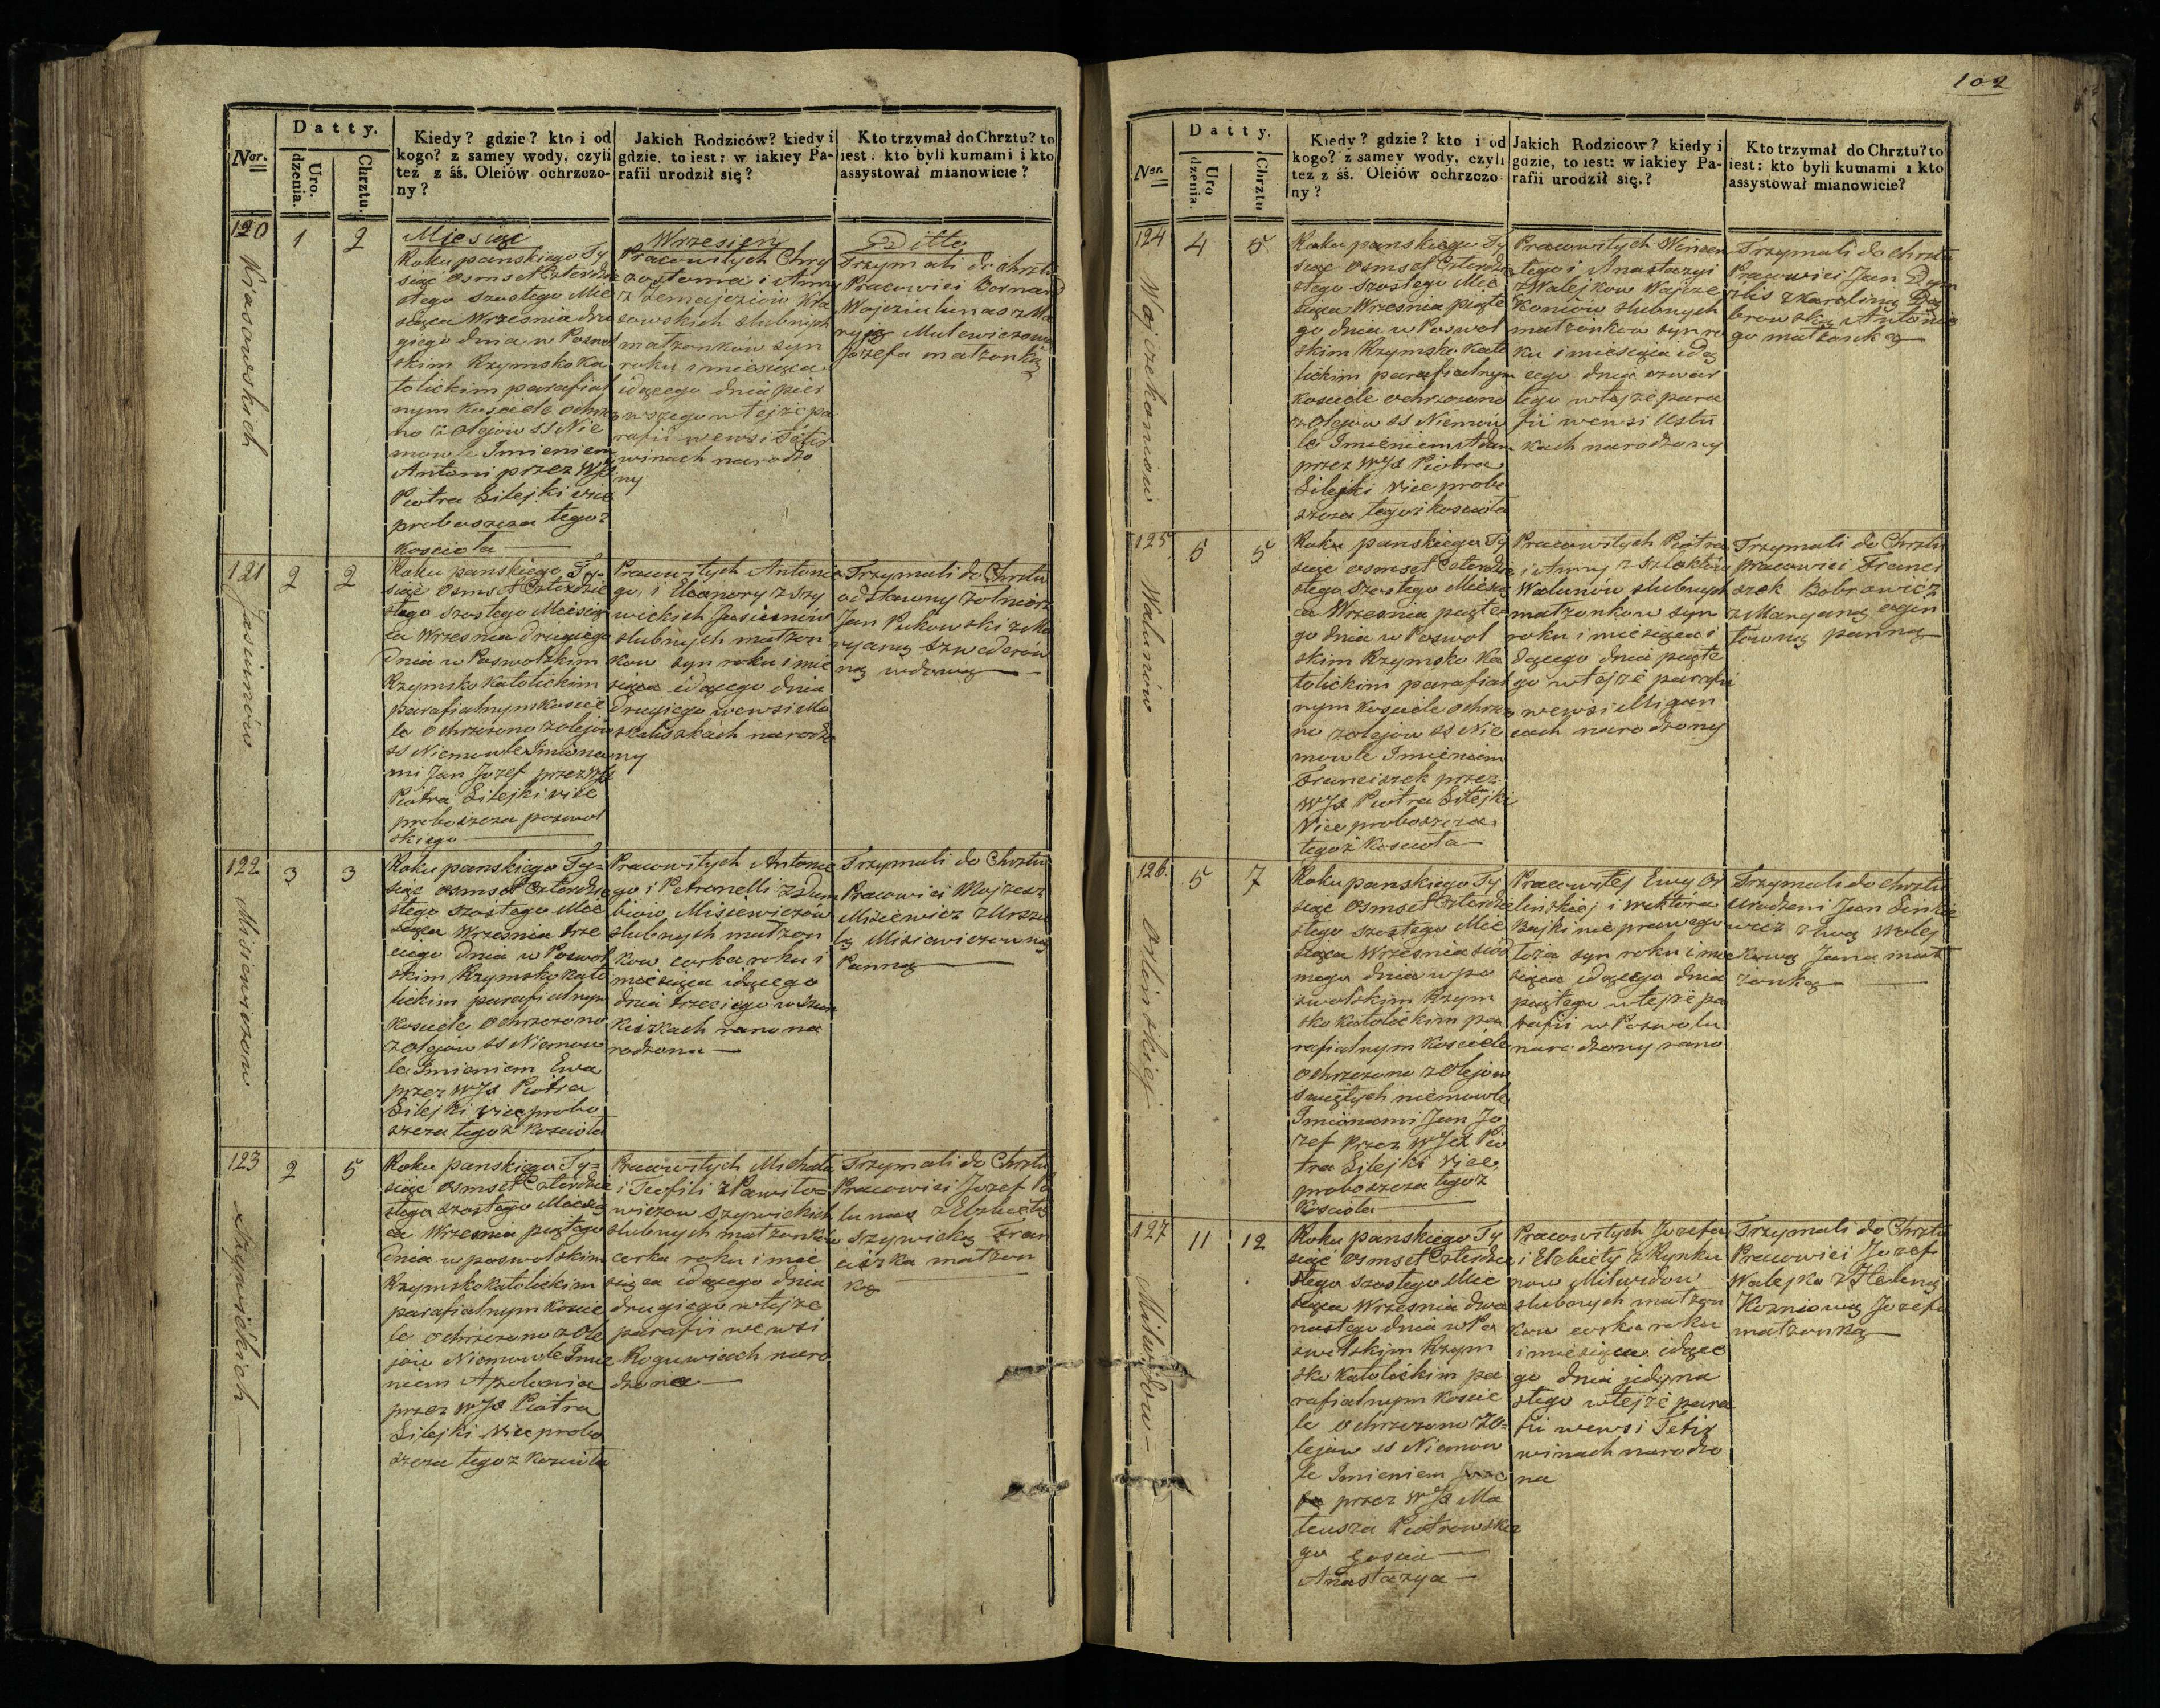 102
Datty.
Ner.
Uro.
dzenia.
Chrztu.
Kiedy? gdzie? kto i od
kogo? z samey wody, czyli
też z śś. Oleiów ochrzczo-
ny?
Jakich Rodziców? kiedy i
gdzie, to iest: w iakiey Pa-
rafii urodził się?
Kto trzymał do Chrztu? to
iest: kto byli kumami i kto
assystował mianowicie?
120
1
2
Miesiąc
Roku panskiego Ty
siąc osmset Czterdzie
stego szostego Mie
siąca Wrzesnia dru
giego dnia w Poswol
skim Rzymsko Ka
tolickim parafial
nym Kosciele ochrzczo
no z olejow SS Nie
mowle Imieniem
Antoni przez WJX
Piotra Lilejki vice
proboszcza tegoż
Kosciola
Wrzesień
Pracowitych Chry
zostoma i Anny
slubnych
matzonków syn
roku i miesiąca
idącego dnia pier
wszego w tejże pa
rafii wewsi Tetir
winach narodzo
ny
Ditto
Trzymali do chrztu
Pracowici Bernard
Jozefa matzonką
121
Jasiunów
2
2
Roku panskiego Ty-
siąc Osmset Czterdzie
stego szostego Miesią
ca Wrzesnia Drugiego
dnia w Poswolskim
Rzymsko Katolickim
parafialnym Koscie
le Ochrzczono z olejów
SS Niemowle Imiona
mi Jan Jozef przez WJX
Piotra Lilejki vice
proboszcza poswol
skiego
Pracowitych Antonie
go i Eleonory z Szy
wickich Jasiunów
slubnych matzon
kow syn roku i mie
siąca idącego dnia
Drugiego wewsi Mo
skaliszkach narodzo
ny
Trzymali do Chrztu
odstawny zołnierz
Jan Pukowski z Ma
ryaną Szwederow
ną wdową
122
Misiewiczow
3
3
Roku panskiego Ty-
siąc osmset Czterdzie
stego szostego Mie
siąca Wrzesnia trze
ciego dnia w Poswol
skim Rzymsko Kato
lickim parafialnym
Kosciele Ochrzczono
z olejow SS Niemow
le Imieniem Ewa
przez WJX Piotra
Lilejki viceprobo
szcza tegoż Kosciola
Pracowitych Antonie
go i Petronelli
Misiewiczów
slubnych matzon
kow corka roku i
miesiąca idącego
dnia trzeciego
rano na
rodzona
Trzymali do Chrztu
Pracowici
Misiewicz z Urszu
lą Misiewiczowną
Panną
123
Szywickich
2
5
Roku panskiego Ty-
siąc osmset Czterdzie
stego szostego Miesią
ca Wrzesnia piątego
dnia w poswolskim
Rzymsko katolickim
parafialnym Koscie
le Ochrzczono z Ole
jów Niemowle Imie
niem Apolonia
przez WJX Piotra
Lilejki Viceprobo
szcza tegoż Kosciola
Pracowitych Michala
i Teofili z Pawilo-
wiczow Szywickich
slubnych matzonków
corka roku i mie
siąca idącego dnia
drugiego w tejże
parafii we wsi
Roguwiach naro
dzona
Trzymali do Chrztu
Pracowici Jozef Pa
lunas z Elzbietą
Szywicką Fran
ciszka matzon
ką
Datty.
Ner.
Uro
dzenia.
Chrztu
Kiedy? gdzie? kto i od
kogo? z samey wody, czyli
też z śś. Oleiów ochrzczo-
ny?
Jakich Rodziców? kiedy i
gdzie, to iest: w iakiey Pa-
rafii urodził się.?
Kto trzymał do Chrztu? to
iest: kto byli kumami i kto
assystował mianowicie?
124
Wojczekaniow
4
5
Roku panskiego Ty
siąc osmset Czterdzie
stego szostego Mie
siąca Wrzesnia piąte
go dnia w Poswol
skim Rzymsko Kato
lickim parafialnym
kosciele ochrzczono
z olejow SS Niemow
le Imieniem Adam
przez WJX Piotra
Lilejki vice probo
szcza tegoż kosciola
Pracowitych Wincen
tego i Anastazyi
z Walejkow
slubnych
matzonkow syn ro
ku i miesiąca idą
cego dnia czwar
tego w tejże para
fii we wsi Ustu
kach narodzony
Trzymali do chrztu
Pracowici Jan
z Karoliną Dą
browską Antonie
go matzonką
125
Walunów
5
5
Roku panskiego Ty
siąc osmset Czterdzie
stego Szostego Miesią
ca Wrzesnia piąte
go dnia w Poswol
skim Rzymsko Ka
tolickim parafial
nym Kosciele Ochrzczo
no z olejow SS Nie
mowle Imieniem
Franciszek przez
WJX Piotra Lilejki
Vice proboszcza
tegoż Kosciola
Pracowitych Piotra
i Anny
Walunów slubnych
matzonkow syn
roku i miesiąca i
dącego dnia piąte
go w tejże parafii
we wsi Migon
cach narodzony
Trzymali do Chrztu
pracowici Franci
szek Bobrowicz
z Maryaną
panną
126.
Orlinskiej
5
7
Roku panskiego Ty
siąc Osmset Czterdzie
stego szostego Mie
siąca Wrzesnia siod
mego dnia w po
swolskim Rzym
sko Katolickim pa
rafialnym Kosciele
Ochrzczono z Olejow
swiętych niemowle
Imionami Jan Jo
zef przez WJX Pio
tra Lilejki vice
proboszcza tegoż
Kosciola
Pracowitej Ewy Or
linskiej i Wiktora
Bajki nie prawego
łoża syn roku i mie
siąca idącego dnia
piątego w tejże pa
rafii w Poswolu
narodzony rano
Trzymali do chrztu
Urodzeni Jan Linkie
wicz z Ewą Walej
kową Jana mat
żonką
127
Milwidow
11
12
Roku panskiego Ty
siąc Osmset Czterdzie
stego szostego Mie
siąca Wrzesnia dwu
nastego dnia w Po
swolskim Rzym
sko Katolickim pa
rafialnym Koscie
le Ochrzczono z O-
lejow SS Niemow
le Imieniem
przez WJX Ma
teusza Piotrowskie
go
Anastazya
Pracowitych Jozefa
i Elzbiety z Rynku
now Milwidow
slubnych matzon
kow corka roku
i miesiąca idące
go dnia jedyna
stego w tejże para
fii wewsi Tetir
winach narodzo
na
Trzymali do Chrztu
Pracowici Jozef
Walejko z Heleną
Kozniową Jozefa
matzonką